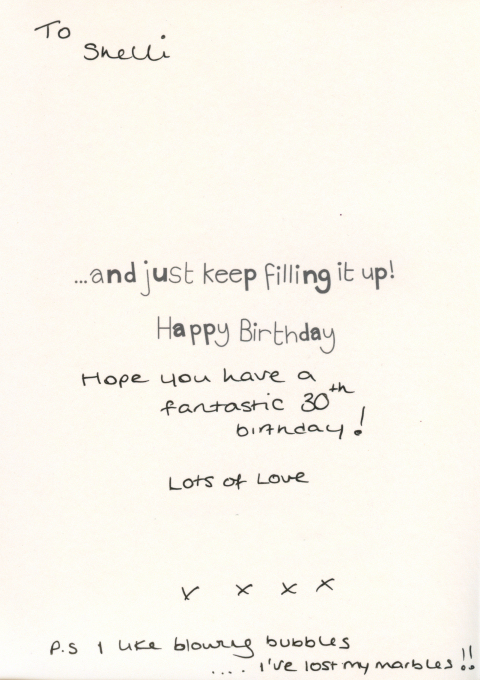 To
Shelli
...and just keep filling it up!
Happy Birthday
Hope you have a
fantastic 30th
birthday!
Lots of Love
x x x x
P.S I like blowing bubbles
.... I've lost my marbles!!